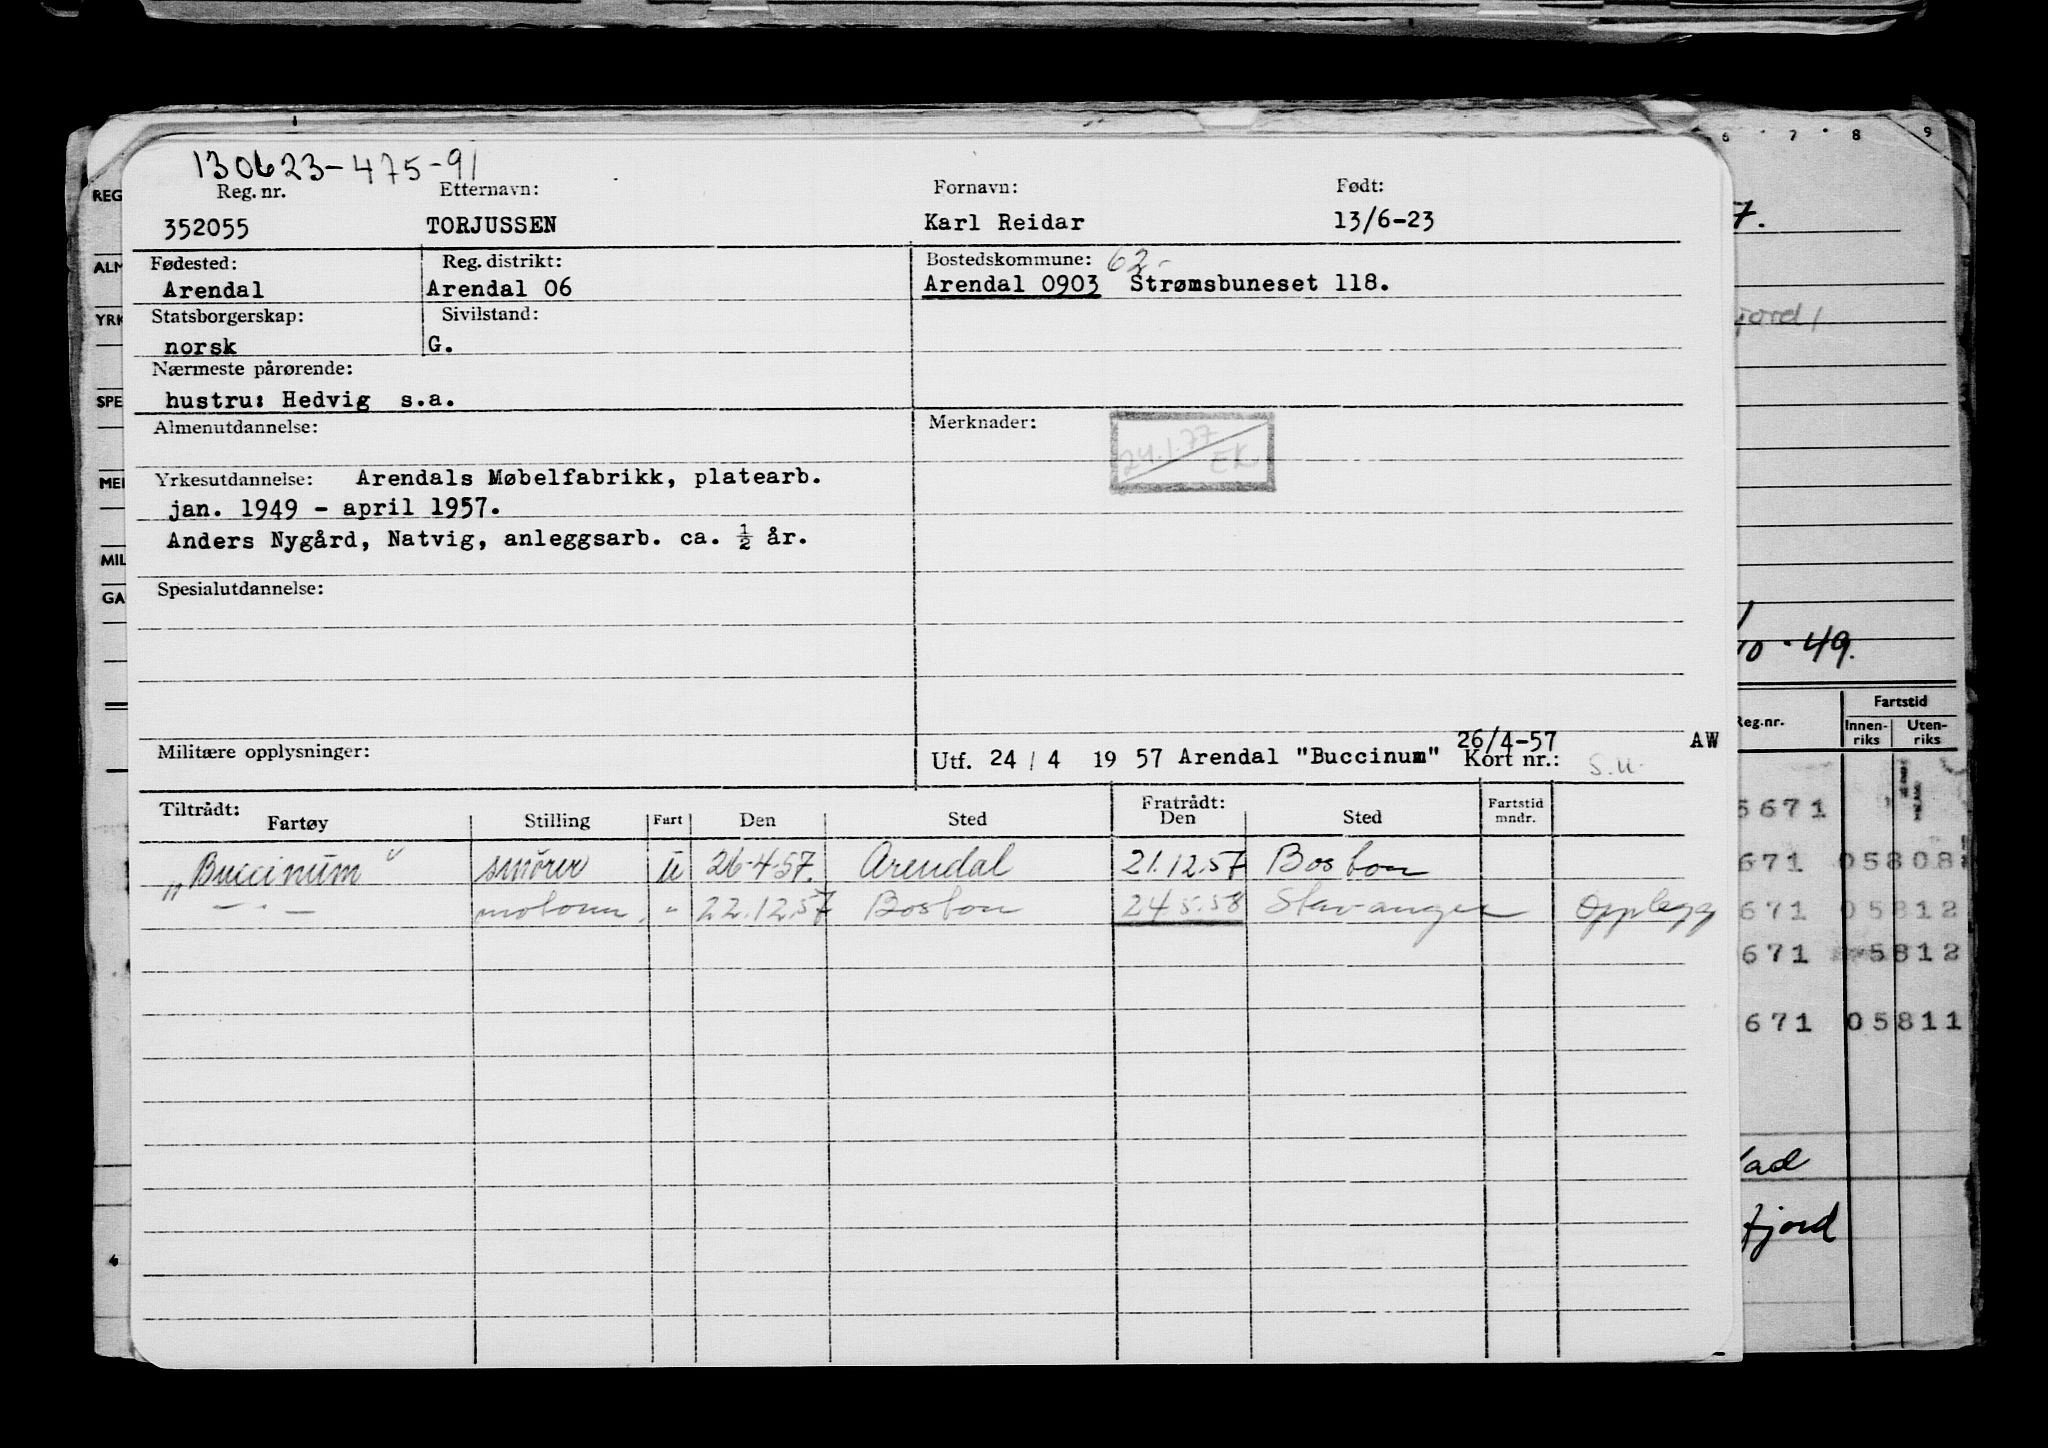 130623-475-91
Reg. nr. Etternavn: Fornavn: Født:
352055 TORJUSSEN Karl Reidar 13/6-23
Fødested: Reg. distrikt: Bostedskommune: 62-
Arendal Arendal 06 Arendal 0903 Strømsbuneset 118.
Statsborgerskap: Sivilstand:
norsk G.
Nærmeste pårørende:
hustru: Hedvig s.a.
Almenutdannelse: Merknader:
24.1.77 EK
Yrkesutdannelse: Arendals Møbelfabrikk, platearb.
jan. 1949 - april 1957.
Anders Nygård, Natvig, anleggsarb. ca. ½ år.
Spesialutdannelse:
Militære opplysninger: Utf. 24 / 4 19 57 Arendal "Buccinum" 26/4-57 Kort nr.: S.U. AW
Tiltrådt: Fratrådt:
Fartøy Stilling Fart Den Sted Den Sted Fartstid mndr.
"Buccinum" smører u 26-4-57. Arendal 21.12.57 Boston
— · — motorm. " 22.12.57 Boston 24 5.58 Stavanger Opplegg
REG
ALM
YRK
SPE
MEI
MIL
GA
4
6 7 8 9
7.
jord/
10 · 49.
Reg.nr. Fartstid
Innen-riks Uten-riks
5671
671 05808
671 05812
671 5812
671 05811
fjord